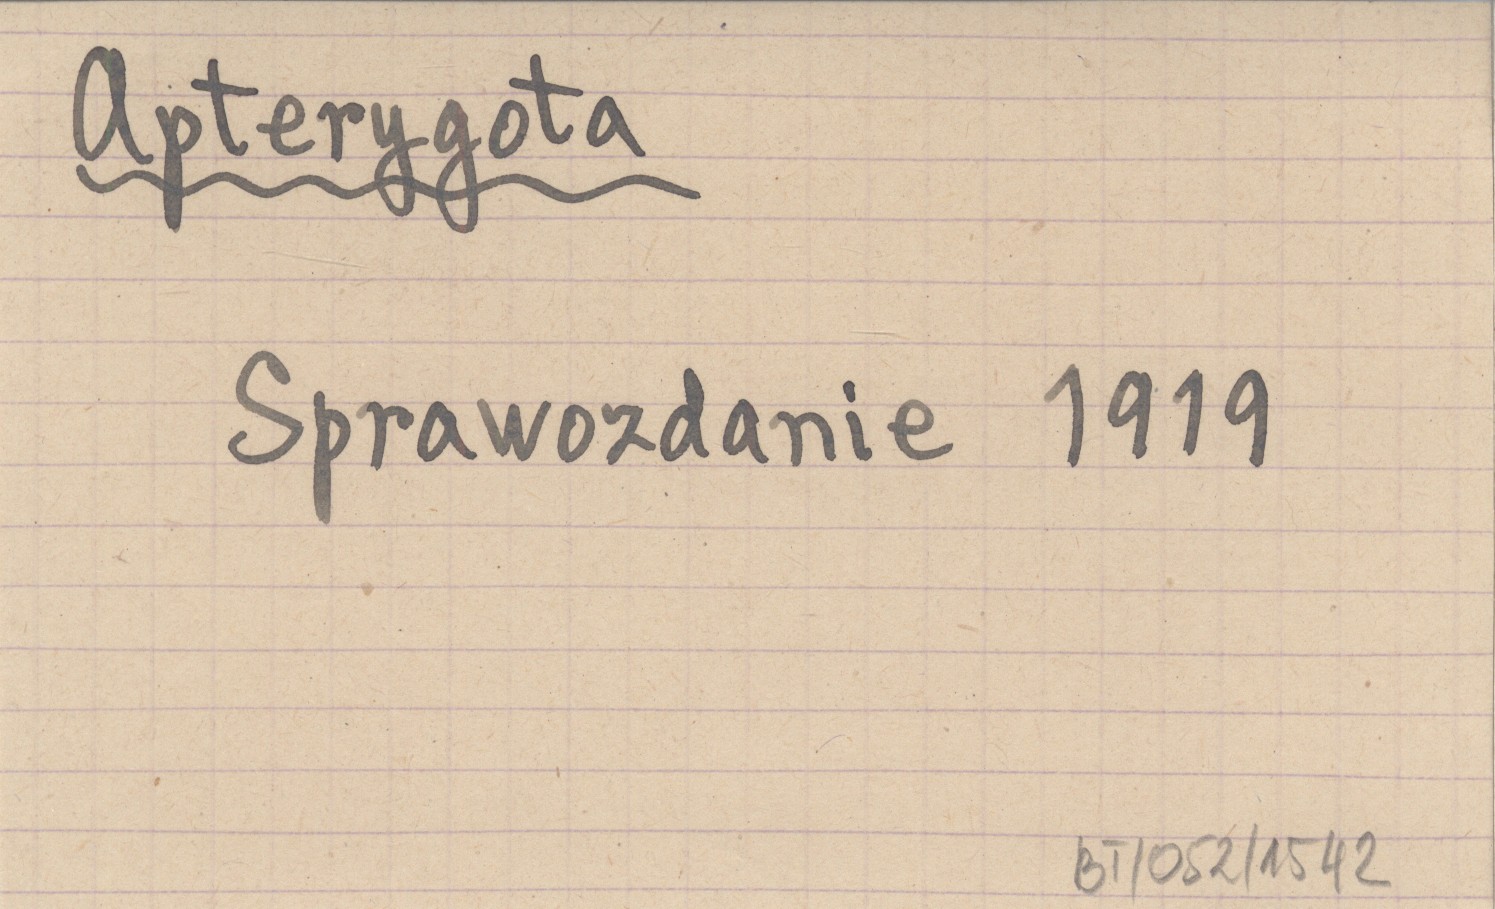 Apterygota
Sprawozdanie 1919
BT/052/1542